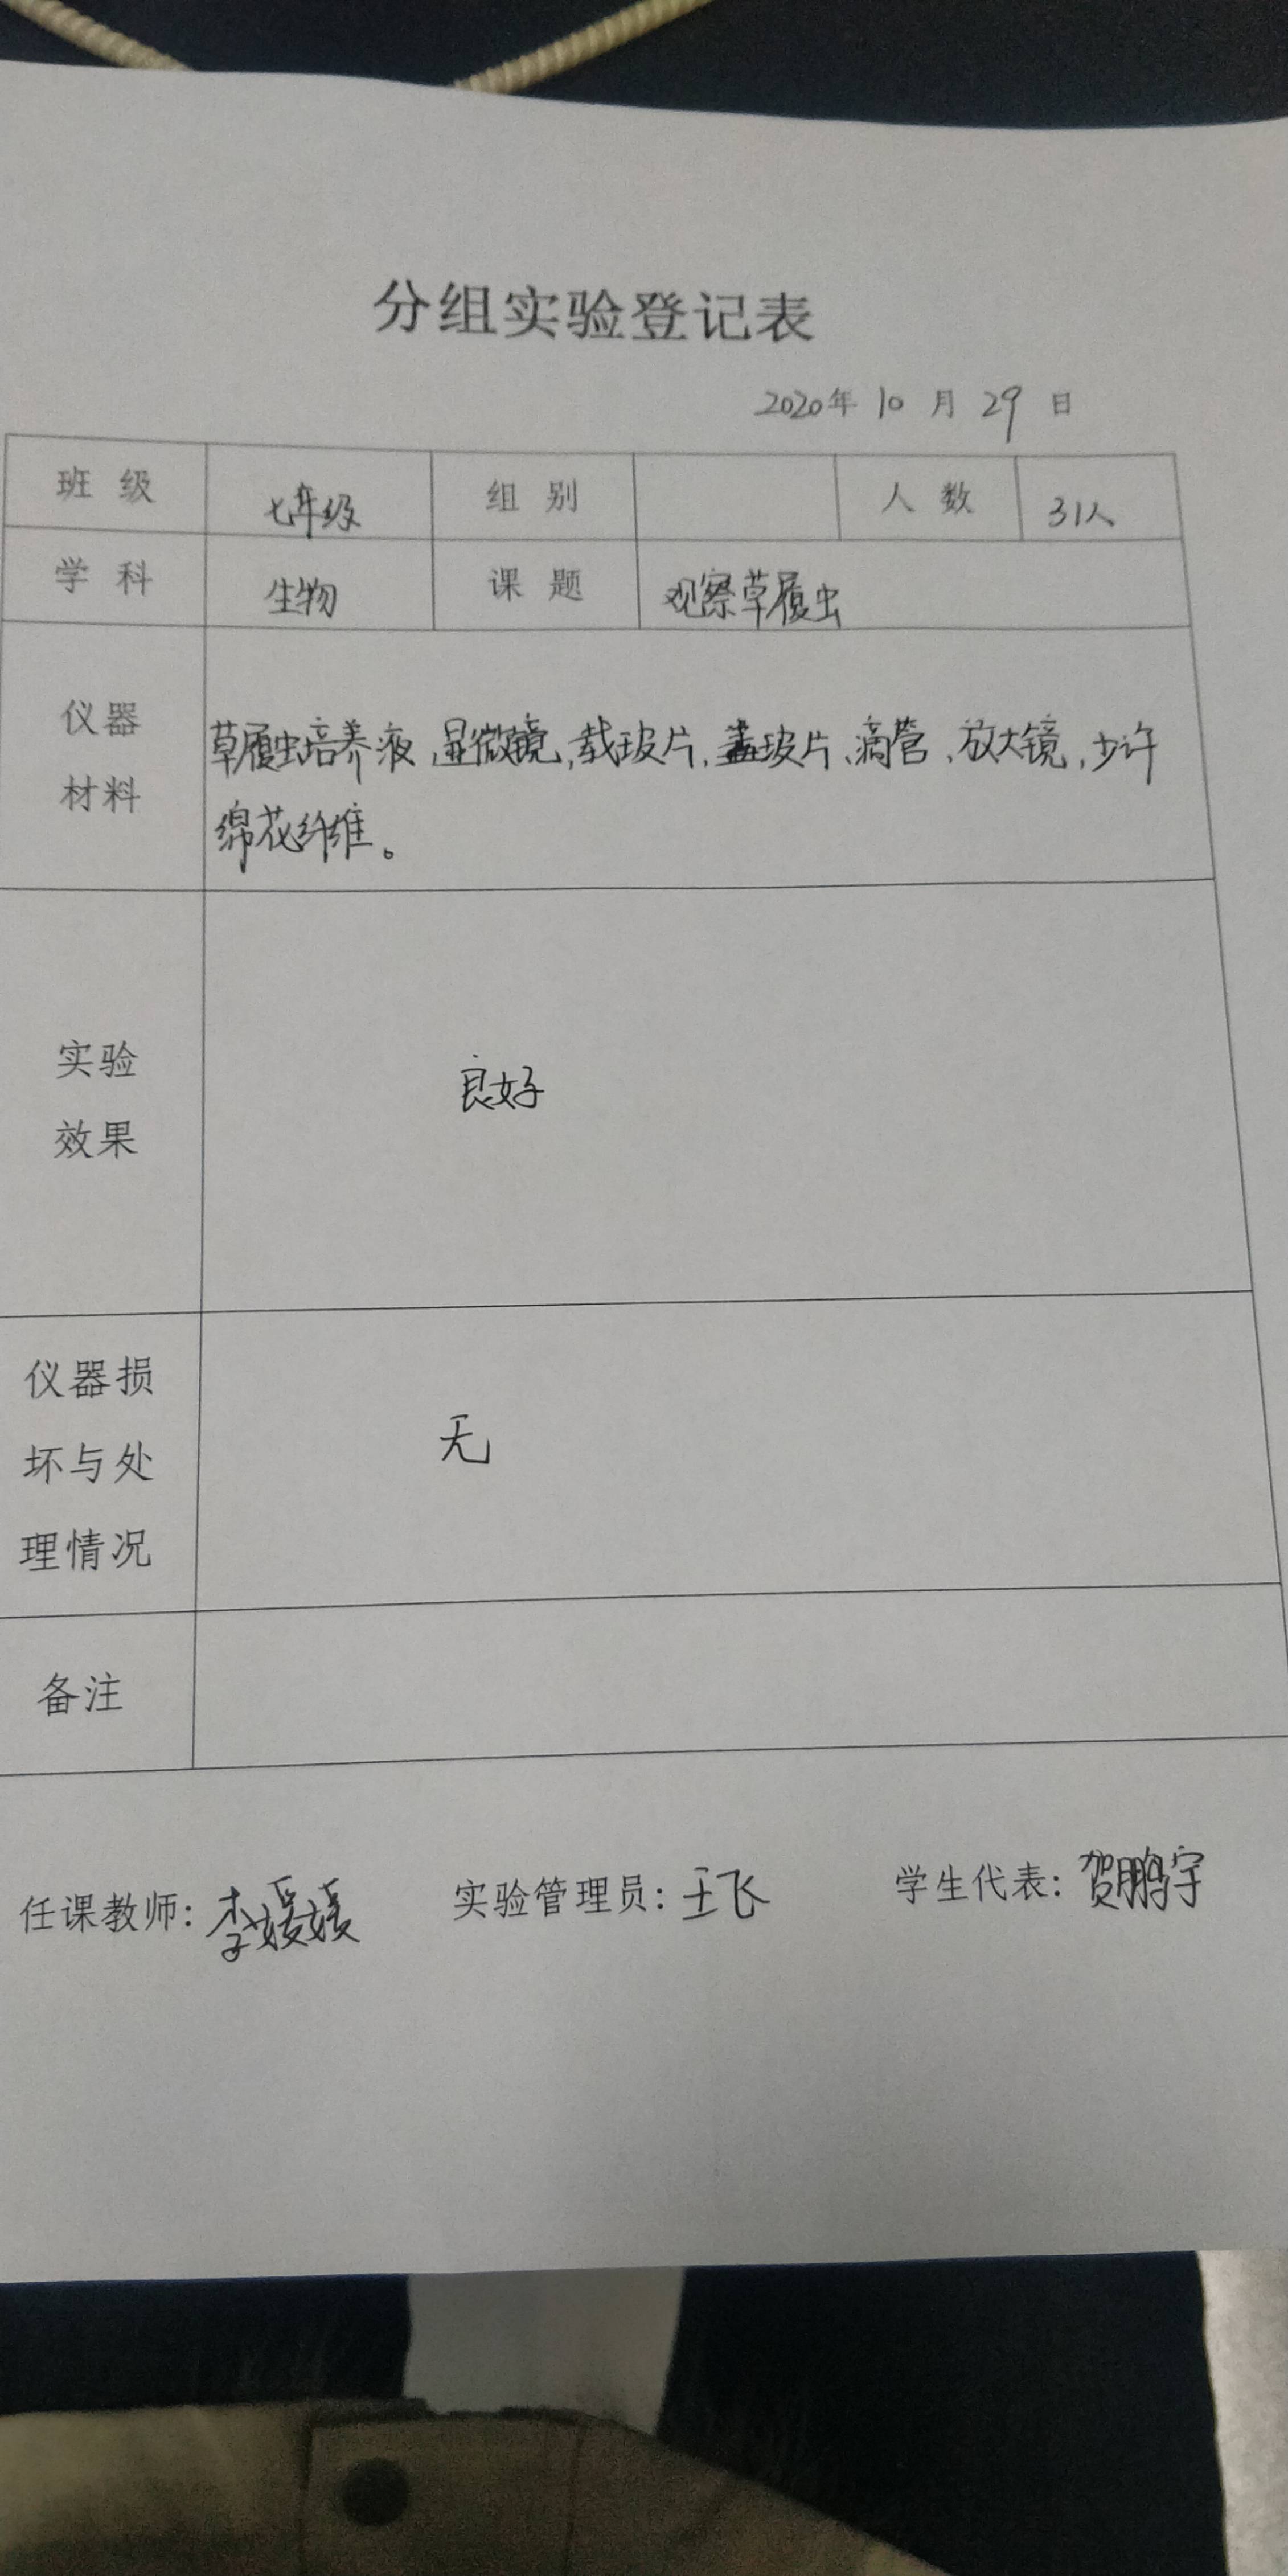 分组实验登记表
2020年 10 月 29 日
班 级 七年级 组 别 人 数 31人
学 科 生物 课 题 观察草履虫
仪器
材料
草履虫培养液、显微镜、载玻片、盖玻片、滴管、放大镜、少许
绵花纤维。
实验
效果
良好
仪器损
坏与处
理情况
无
备注
任课教师: 李媛媛 实验管理员: 王飞 学生代表: 贺鹏宇